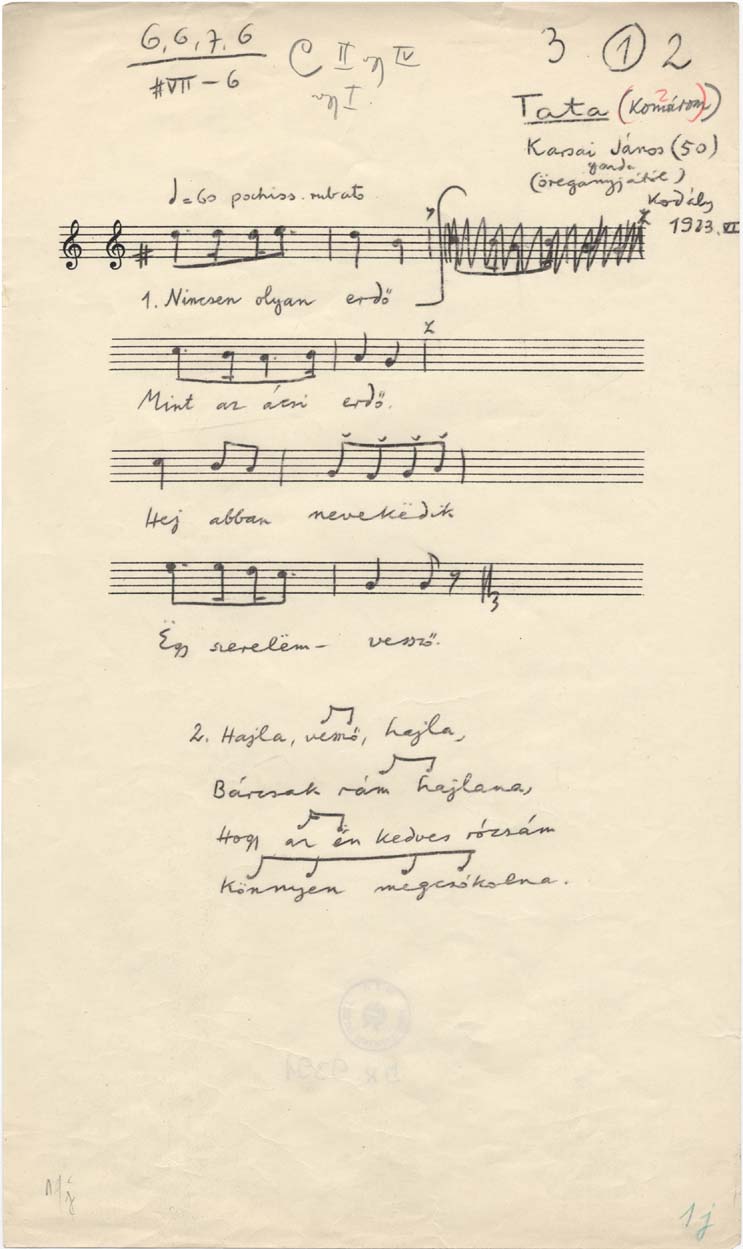 6, 6, 7, 6
#VII – 6
C II IV
I.
3 1 2
Tata (Komárom)
2
Karsai János (50)
(öreganyjától)
Kodály
1923. VI
♩=60 pochiss. rubato
1. Nincsen olyan erdő
Mint az ácsi erdő.
Hej abban nevekëdik
Ëgy szerelëm– vessző.
2. Hajla, vessző, hajla,
Bárcsak rám hajlana,
Hogy az én kedves rózsám
Könnyen mëgcsókolna.
1j